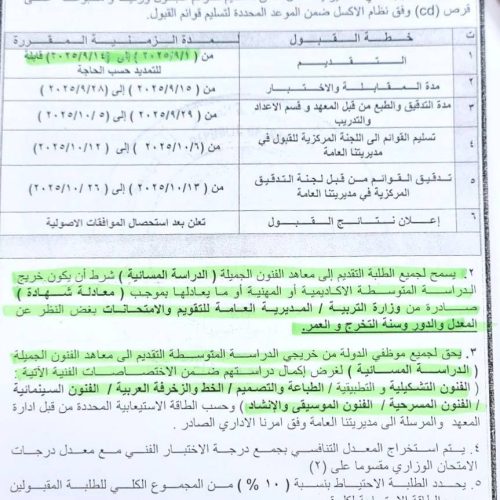 قرص (cd) وفق نظام الاكسل ضمن الموعد المحددة لتسليم قوائم القبول.
ت	خطة القبول	المدة الزمنية المقررة
١	التقديم	من ( ٢٠٢٥/٩/١ ) إلى ( ٢٠٢٥/٩/١٤ ) قابلة للتمديد حسب الحاجة
٢	مدة المقابلة والاختبار	من ( ٢٠٢٥/٩/١٥ ) إلى ( ٢٠٢٥/٩/٢٨ )
٣	مدة التدقيق والطبع من قبل المعهد و قسم الاعداد والتدريب	من ( ٢٠٢٥/٩/٢٩ ) إلى ( ٢٠٢٥/١٠/٥ )
٤	تسليم القوائم الى اللجنة المركزية للقبول في مديريتنا العامة	من ( ٢٠٢٥/١٠/٦ ) إلى ( ٢٠٢٥/١٠/١٢ )
٥	تدقيق القوائم من قبل لجنة التدقيق المركزية في مديريتنا العامة	من ( ٢٠٢٥/١٠/١٣ ) إلى ( ٢٠٢٥/١٠/٢٦ )
٦	إعلان نتائج القبول	تعلن بعد استحصال الموافقات الاصولية
٢. يسمح لجميع الطلبة التقديم إلى معاهد الفنون الجميلة ( الدراسة المسائية ) شرط أن يكون خريج
الدراسة المتوسطة الاكاديمية أو المهنية أو ما يعادلها بموجب ( معادلة شهادة )
صادرة من وزارة التربية / المديرية العامة للتقويم والامتحانات بغض النظر عن
المعدل والدور وسنة التخرج و العمر.
٣. يحق لجميع موظفي الدولة من خريجي الدراسة المتوسطة التقديم الى معاهد الفنون الجميلة
( الدراسة المسائية ) لغرض إكمال دراستهم ضمن الاختصاصات الفنية الآتية :
( الفنون التشكيلية و التطبيقية / الطباعة والتصميم / الخط والزخرفة العربية / الفنون السينمائية
/ الفنون المسرحية / فنون الموسيقى والإنشاد ) وحسب الطاقة الاستيعابية المحددة من قبل ادارة
المعهد والمرسلة الى مديريتنا العامة وفق امرنا الاداري الصادر .
٤. يتم استخراج المعدل التنافسي بجمع درجة الاختبار الفني مع معدل درجات
الامتحان الوزاري مقسوما على (٢)
٥. يحدد الطلبة الاحتياط بنسبة ( ١٠ % ) من المجموع الكلي للطلبة المقبولين